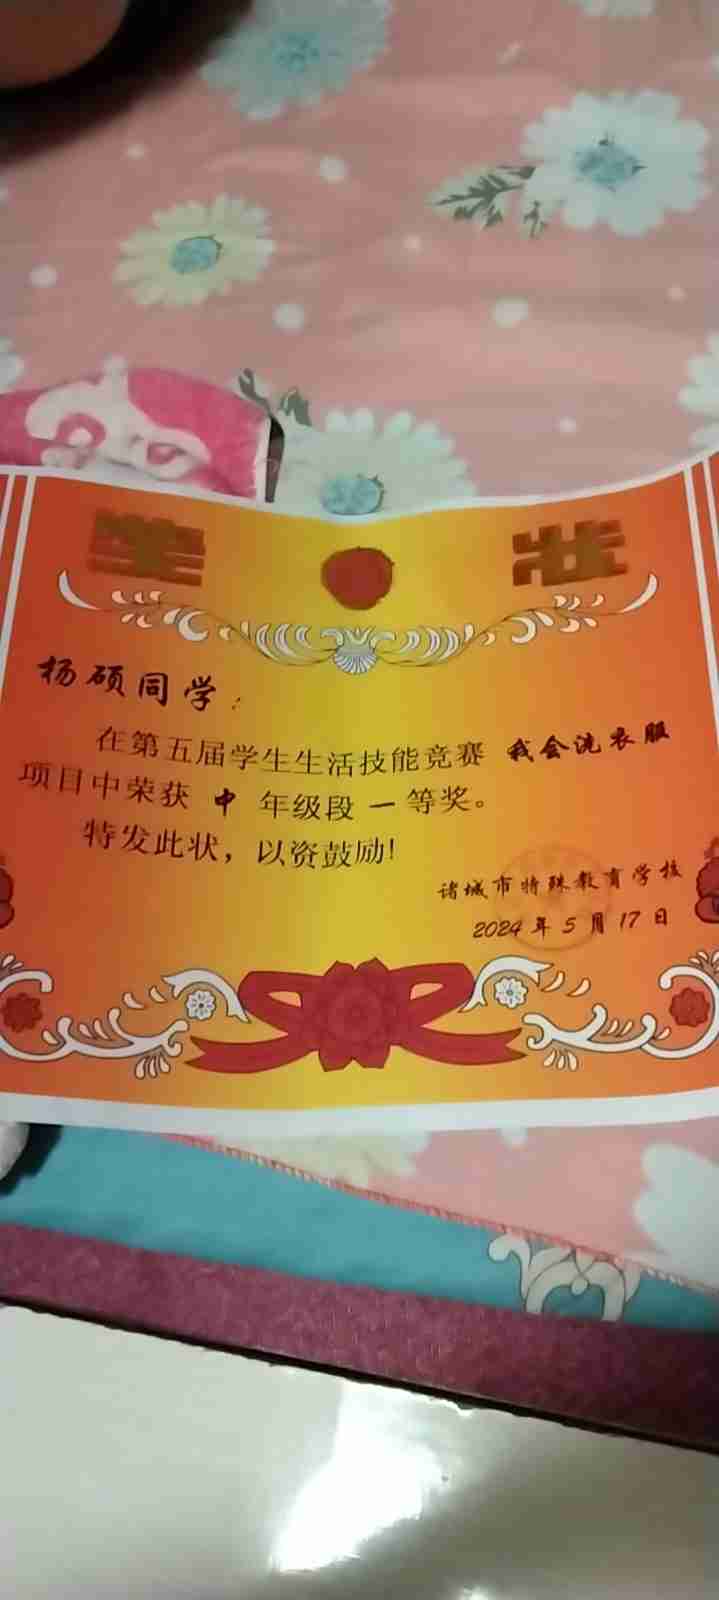 奖状
杨硕同学：
在第五届学生生活技能竞赛 我会洗衣服
项目中荣获 中 年级段 一 等奖。
特发此状，以资鼓励!
诸城市特殊教育学校
2024年5月17日